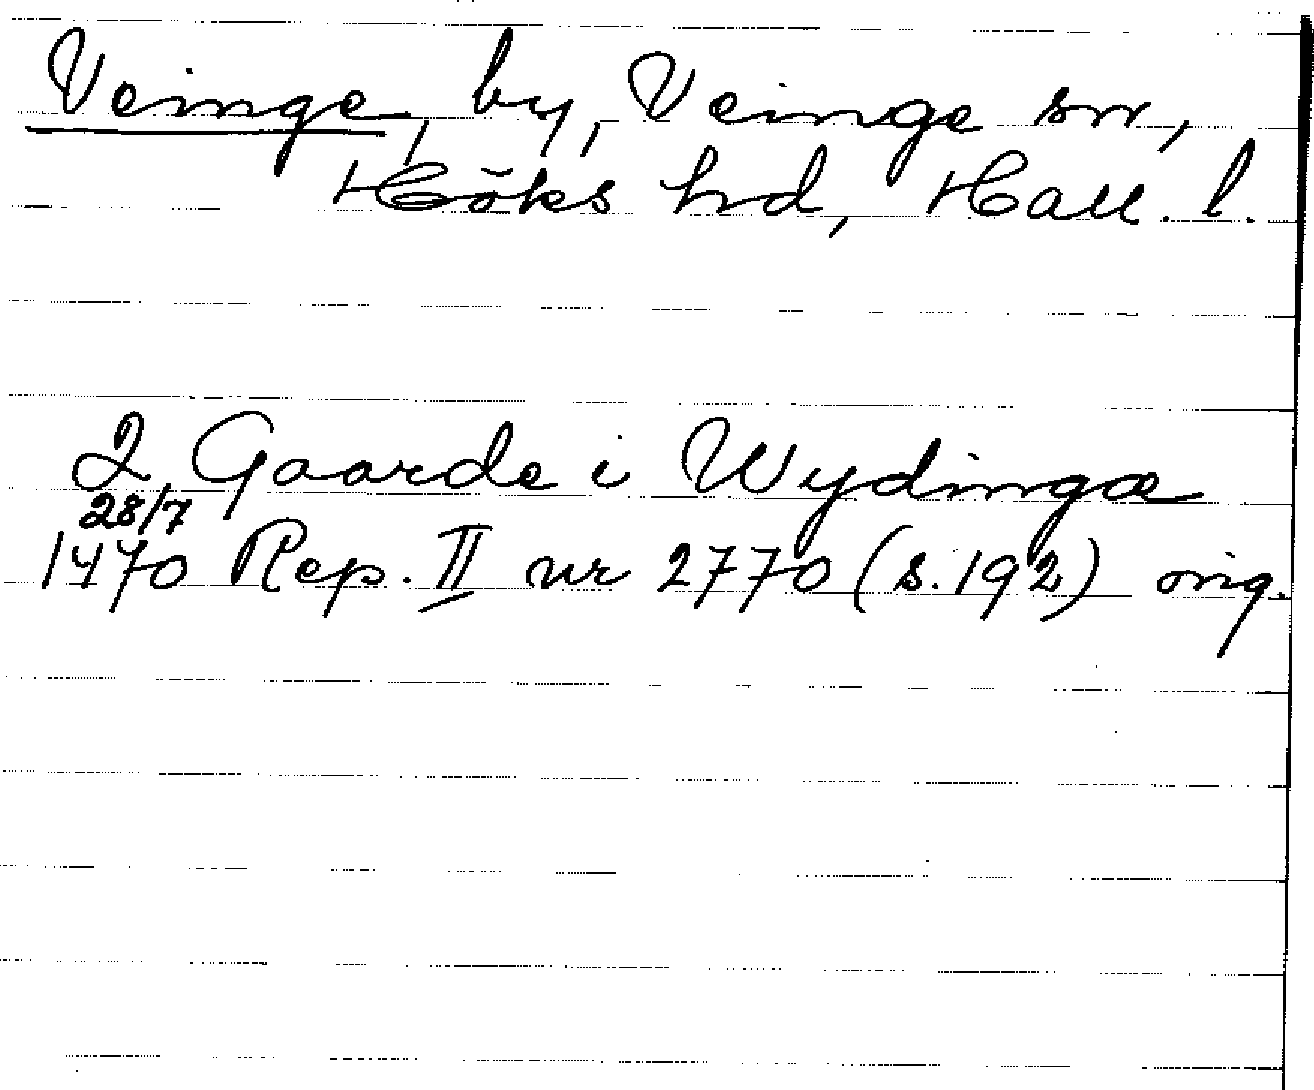 Veinge, by, Veinge sn,
Höks hd, Hall. l.
2 Gaarde i Wydingæ
28/7
1470 Rep. II nr 2770 (s. 192) orig.